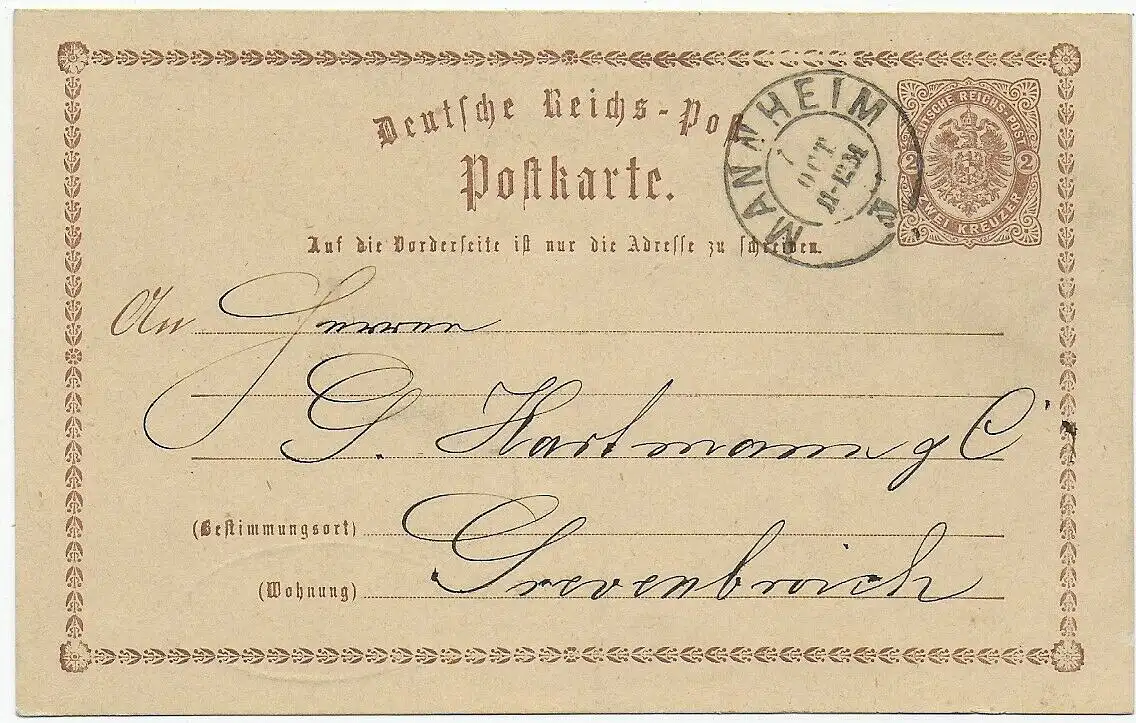 Deutsche Reichs-Post
Postkarte.
Auf die Vorderseite ist nur die Adresse zu schreiben.
MANNHEIM
7
OCT
11-12M
DEUTSCHE REICHS-POST
2 2
ZWEI KREUZER
An Herren
G. Hartmann & C
(Bestimmungsort) Grevenbroich
(Wohnung)